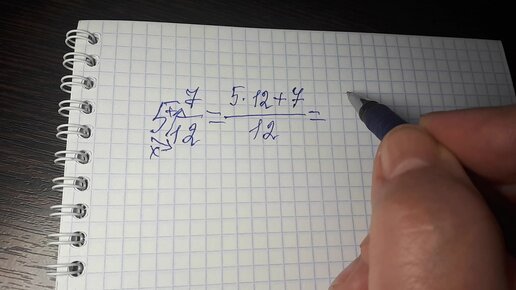 5 7/12 = (5·12+7)/12 =
+
x